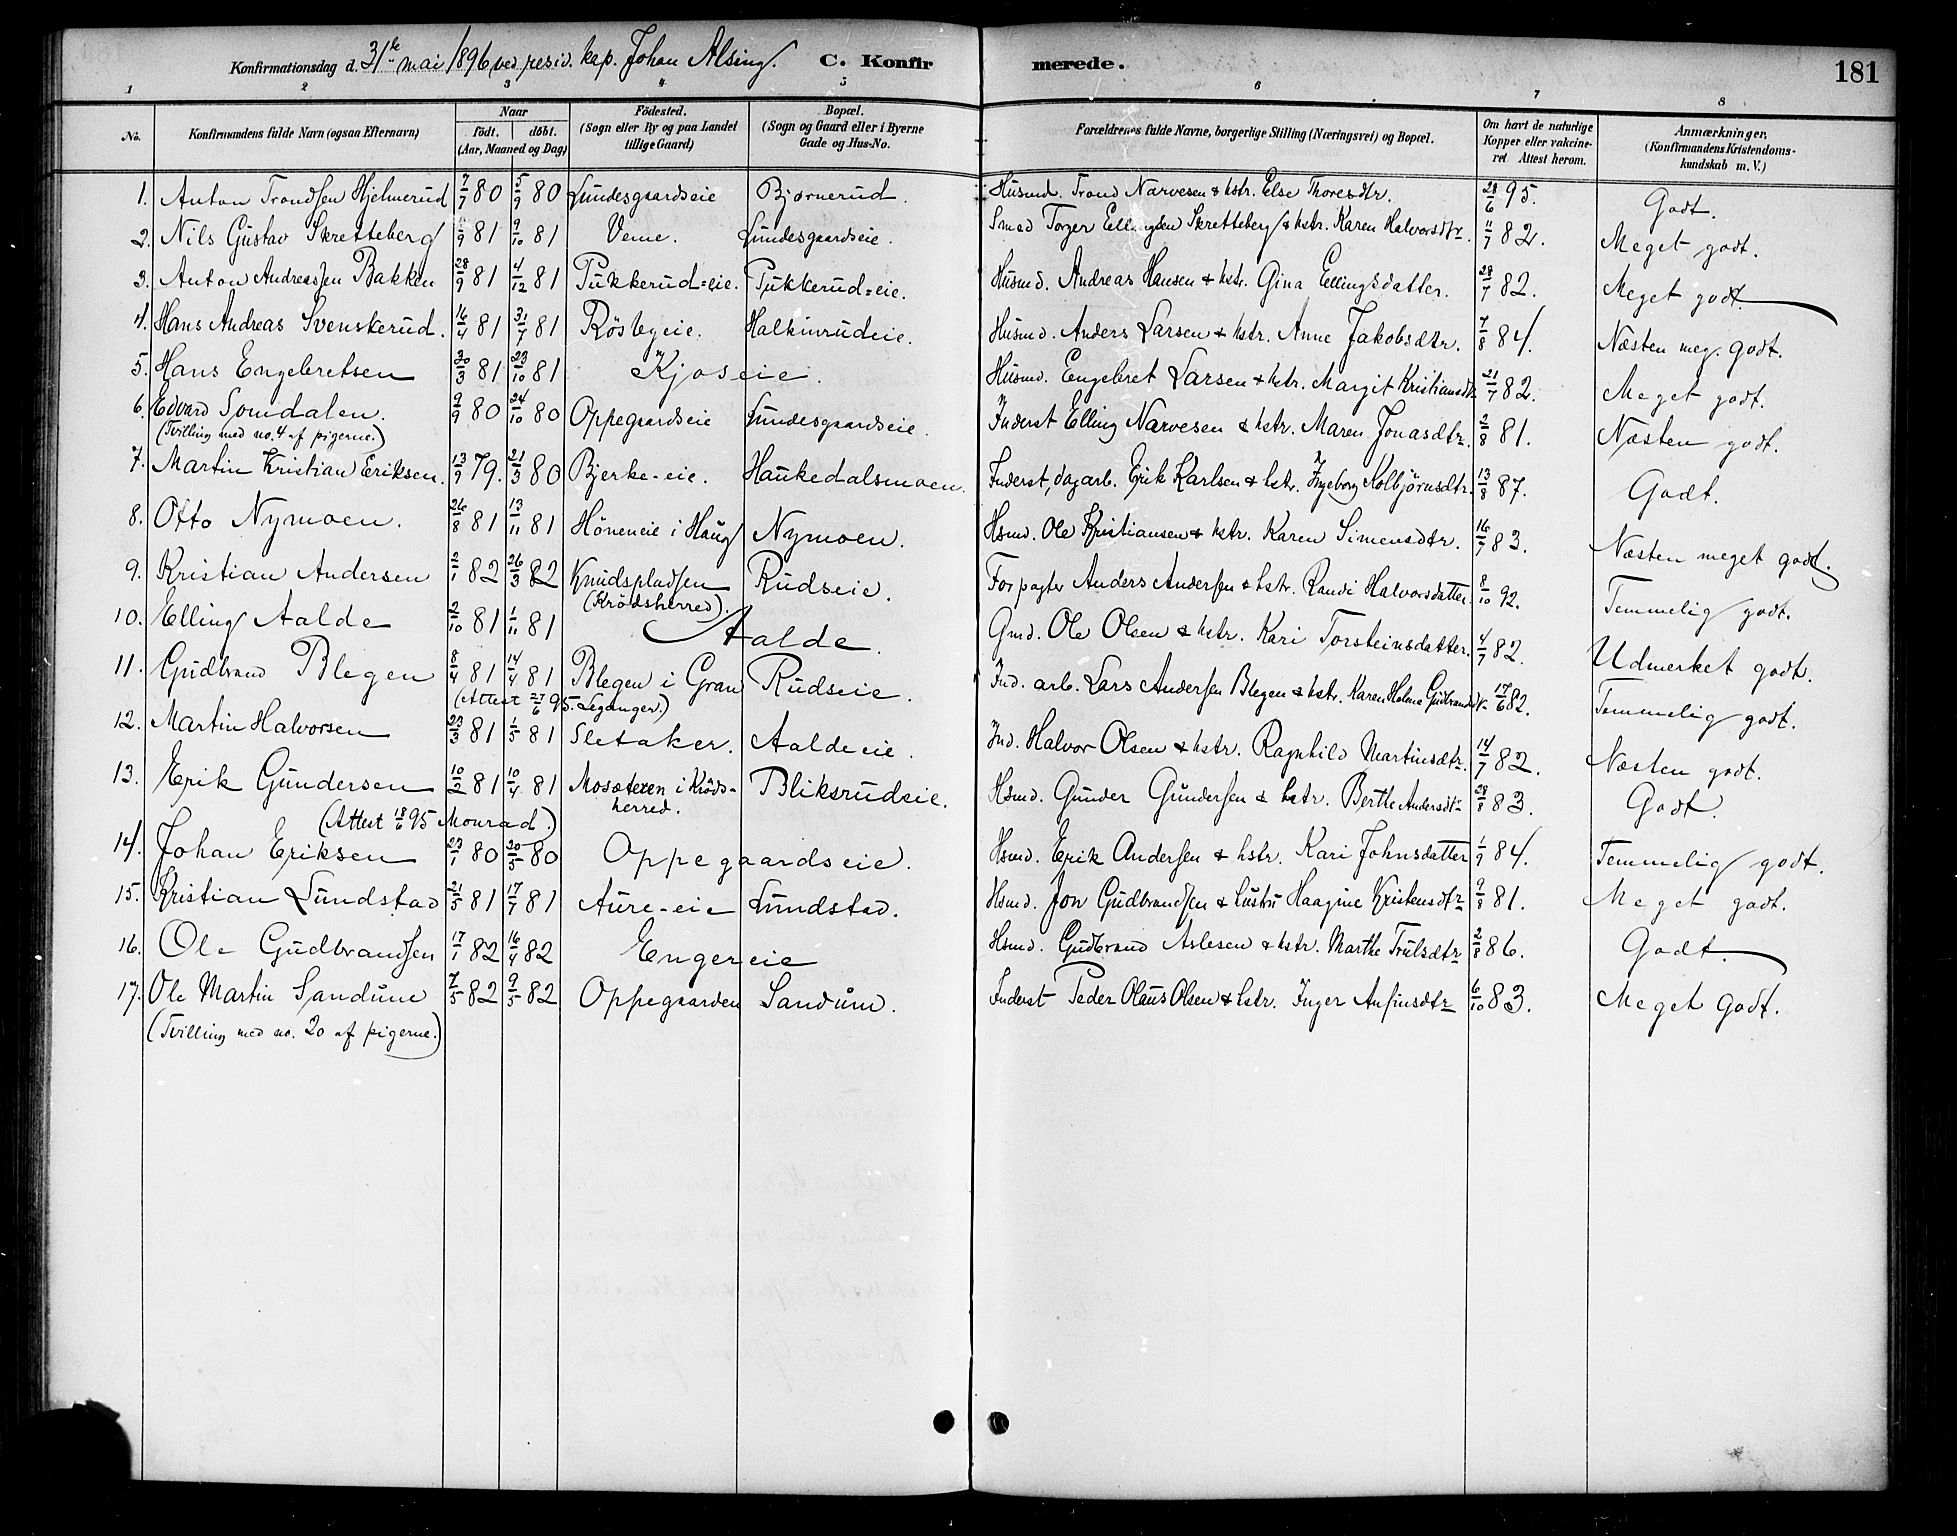 Konfirmationsdag d. 31te mai 1896 ved resid. kap. Johan Alsing. C. Konfirmerede. 181
1 2 3 4 5 6 7 8
No. Konfirmandens fulde Navn (ogsaa Efternavn) Naar födt. döbt. (Aar, Maaned og Dag) Födested. (Sogn eller By og paa Landet tillige Gaard) Bopæl. (Sogn og Gaard eller i Byerne Gade og Hus-No. Forældrenes fulde Navne, borgerlige Stilling (Næringsvei) og Bopæl. Om havt de naturlige Kopper eller vakcineret Attest herom. Anmærkninger. (Konfirmandens Kristendomskundskab m. V.)
1. Anton Trondsen Hjelmerud 7/7 80 5/9 80 Lundesgaardseie Bjørnerud. Husmd. Trond Narvesen & hstr. Else Thoresdtr. 28/6 95. Godt.
2. Nils Gustav Skretteberg 11/9 81 9/10 81 Veme. Lundesgaardseie. Smed Torger Ellingsen Skretteberg & hstr. Karen Halvorsdtr. 11/7 82. Meget godt.
3. Anton Andreassen Bakken 28/9 81 4/12 81 Pukkerud-eie. Pukkerud-eie. Husmd. Andreas Hansen & hstr. Gina Ellingsdatter. 28/7 82. Meget godt
4. Hans Andreas Svenskerud. 16/4 81 31/7 81 Rösbyeie. Halkinrudeie. Husmd. Anders Larsen & hstr. Anne Jakobsdtr. 7/8 84. Næsten meg. godt.
5. Hans Engebretsen 20/3 81 23/10 81 Kjoseie. Husmd. Engebret Larsen & hstr. Margit Kristiansdtr 21/7 82. Meget godt.
6. Edvard Somdalen. 9/9 80 24/10 80 Oppegaardseie Lundesgaardseie. Inderst Elling Narvesen & hstr. Maren Jonasdtr. 2/8 81. Næsten godt.
(Tvilling med no. 4 af pigerne.)
7. Martin Kristian Eriksen. 13/9 79. 21/3 80 Bjerke-eie. Haukedalsmoen. Inderst, dagarb. Erik Karlsen & hstr. Ingeborg Kolbjörnsdtr. 13/8 87. Godt.
8. Otto Nymoen. 26/8 81 13/11 81 Höneneie i Haug Nymoen. Hsmd. Ole Kristiansen & hstr. Karen Simensdtr. 16/7 83. Næsten meget godt.
9. Kristian Andersen 2/1 82 26/3 82 Knudspladsen Rudseie. Forpagter Anders Andersen & hstr. Randi Halvorsdatter. 8/10 92. Temmelig godt.
(Krödsherred).
10. Elling Aalde 2/10 81 1/11 81 Aalde. Gmd. Ole Olsen & hstr. Kari Torsteinsdatter. 4/7 82. Udmerket godt.
11. Gudbrand Blegen 8/4 81 14/4 81 Blegen i Gran Rudseie. Ind. arb. Lars Andersen Blegen & hstr. Karen Helene Gudbrandsdtr 17/6 82. Temmelig godt.
(Attest 27/6 95. Leganger.)
12. Martin Halvorsen 23/3 81 1/5 81 Sletaker. Aaldeeie. Ind. Halvor Olsen & hstr. Ragnhild Martinsdtr. 14/7 82. Næsten godt.
13. Erik Gundersen 10/2 81 10/4 81 Mosæteren i Krödsherred. Bliksrudeie. Hsmd. Gunder Gundersen & hstr. Berthe Andersdtr 28/8 83. Godt.
(Attest 18/6 95 Monrad.)
14. Johan Eriksen 23/1 80 20/5 80 Oppegaardseie. Hsmd. Erik Andersen & hstr. Kari Johnsdatter 1/9 84. Temmelig godt.
15. Kristian Lundstad 21/5 81 17/7 81 Aure-eie Lundstad. Hsmd. Jon Gudbrandsen & hustru Haagine Kristensdtr 9/8 81. Meget godt.
16. Ole Gudbrandsen 17/1 82 16/4 82 Engereie Hsmd. Gudbrand Aslesen & hstr. Marthe Trulsdtr 2/8 86. Godt.
17. Ole Martin Sandum 7/5 82 9/5 82 Oppegaarden Sandum. Inderst Peder Olaus Olsen & hstr. Inger Anfinsdtr 6/10 83. Meget Godt.
(Tvilling med no. 20 af pigerne.)